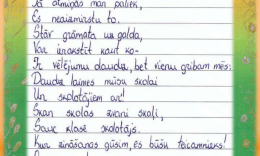 Tā atmiņās man paliek,
Es neaizmirstu to.
Stāv grāmata uz galda,
Var ierakstīt kaut ko-
Ir vēlējumu daudz, bet vienu gribam mēs:
Daudz laimes mūsu skolai
Un skolotājiem arī!
Skan skolas zvani skaļi,
Sauc klasē skolotājs.
Kur zināšanas gūsim, es būšu teicamnieks!